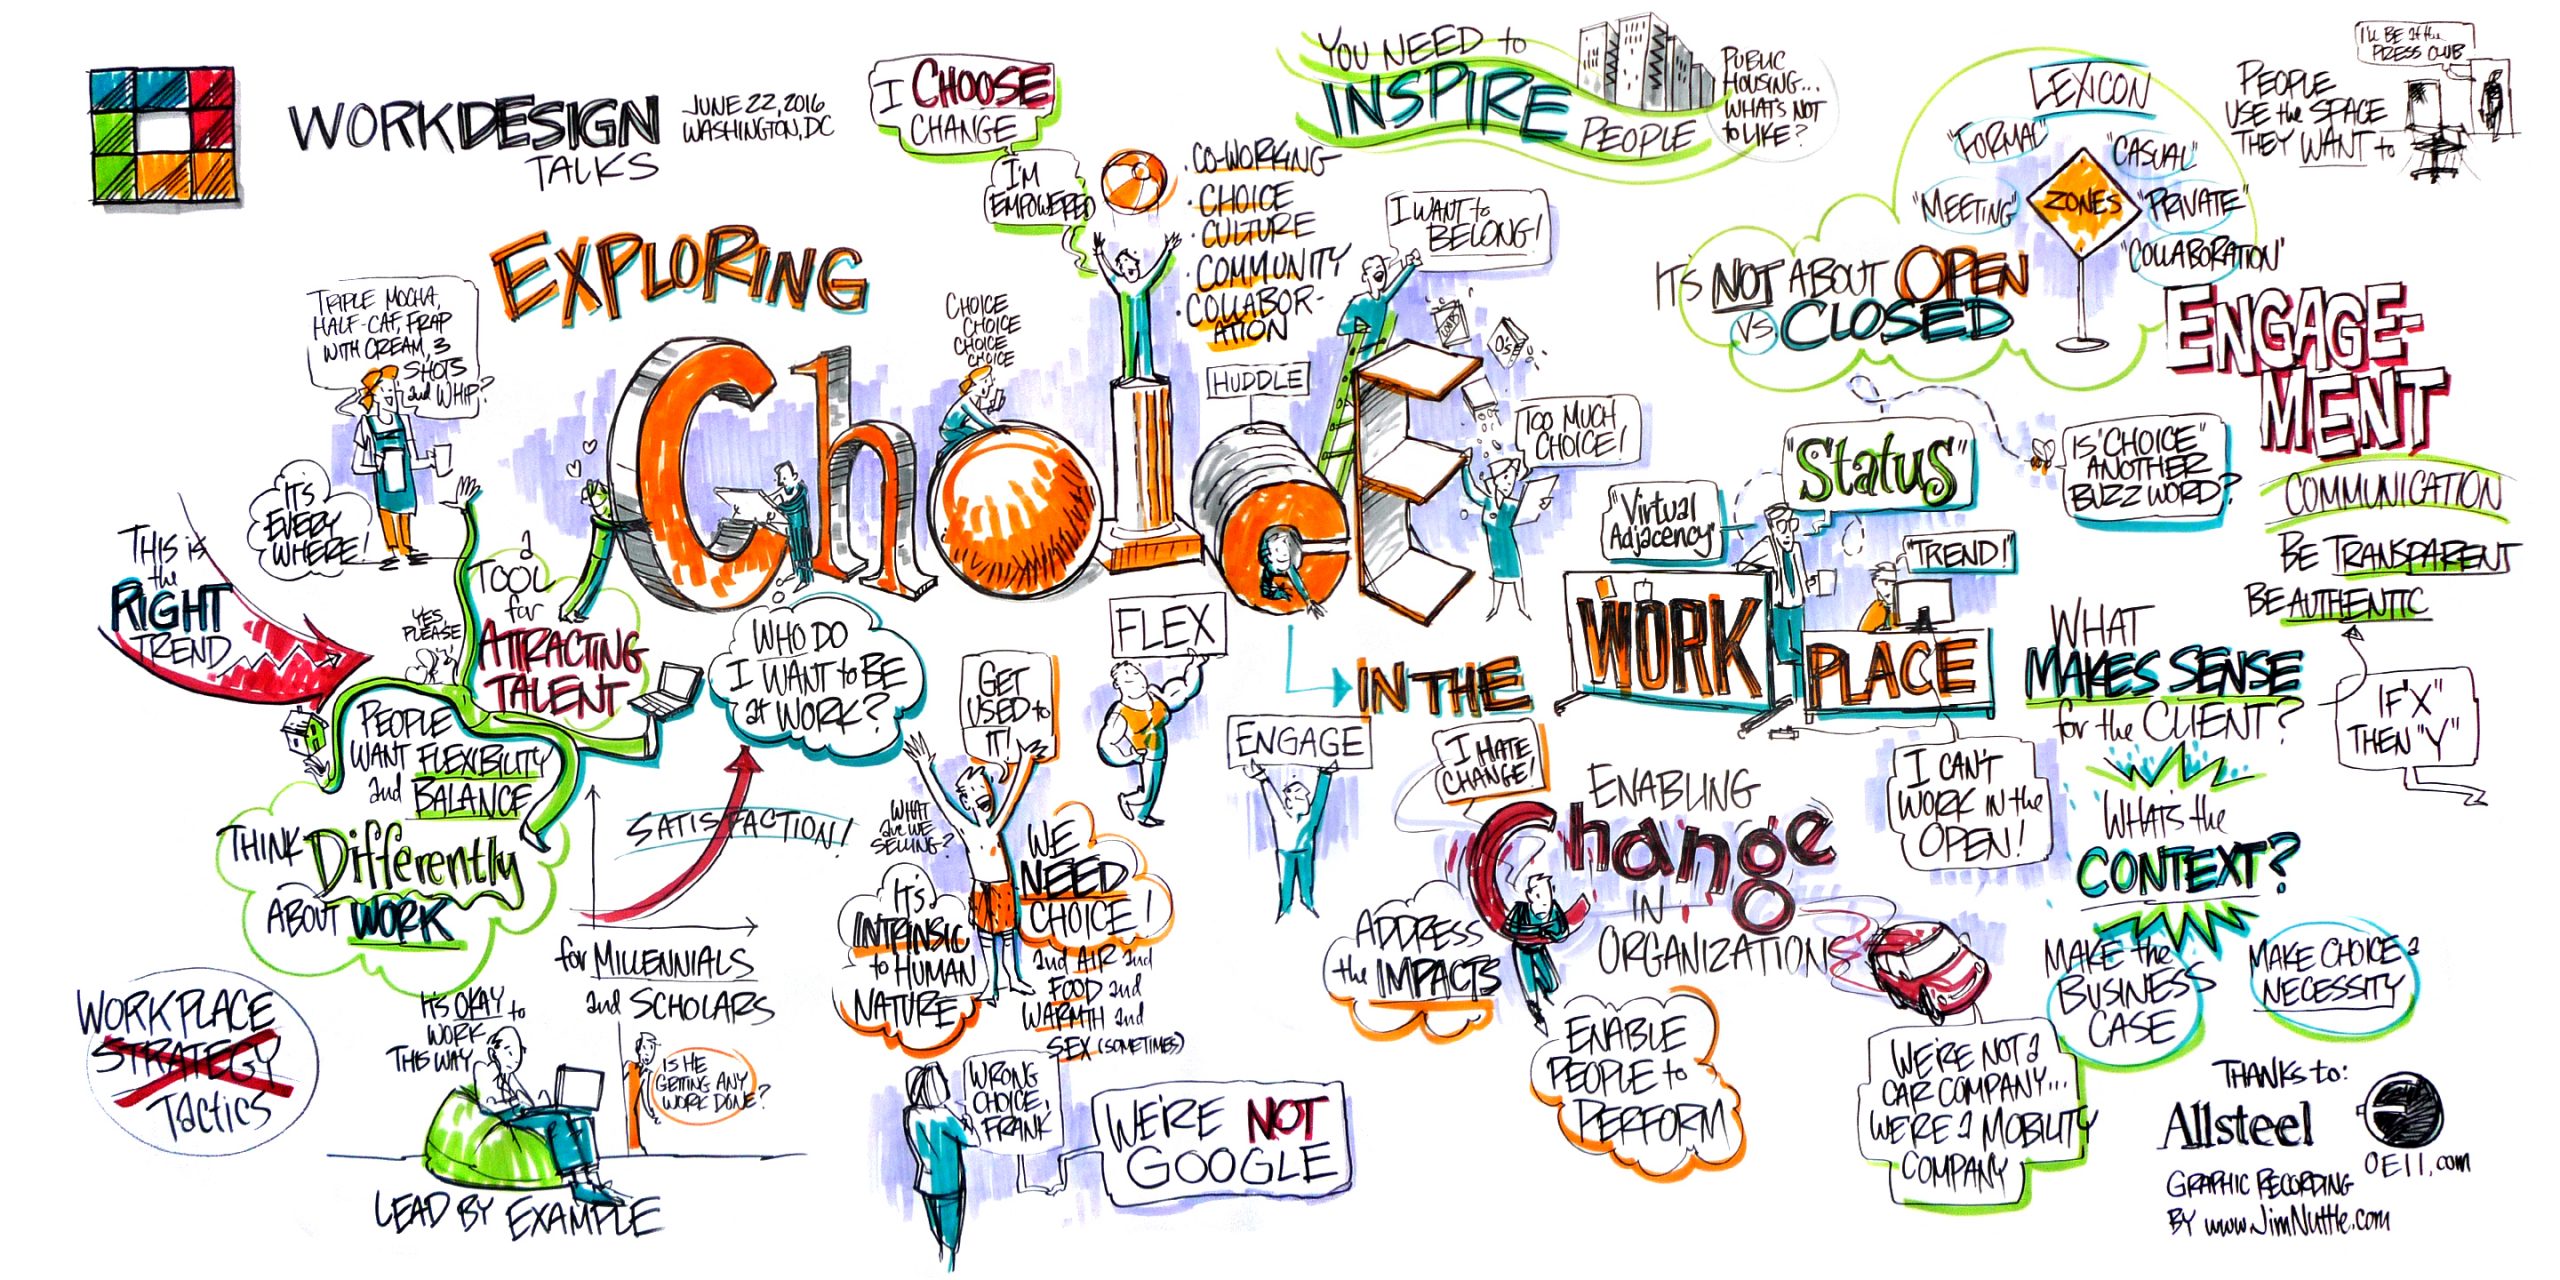 WORKDESIGN
TALKS
JUNE 22, 2016
WASHINGTON, DC
I CHOOSE
CHANGE
I'M
EMPOWERED
YOU NEED to
INSPIRE
PEOPLE
PUBLIC
HOUSING...
WHAT'S NOT
to LIKE?
LEXICON
"FORMAL"
"CASUAL"
"MEETING"
ZONES
"PRIVATE"
"COLLABORATION"
PEOPLE
USE the SPACE
THEY WANT to
I'LL BE at the
PRESS CLUB
EXPLORING
Choice
• CO-WORKING
• CHOICE
• CULTURE
• COMMUNITY
COLLABOR-
ATION
I WANT to
BELONG!
IT'S NOT ABOUT OPEN
VS CLOSED
ENGAGE-
MENT
COMMUNICATION
BE TRANSPARENT
BE AUTHENTIC
TRIPLE MOCHA,
HALF-CAF, FRAP
WITH CREAM, 3
SHOTS
and WHIP?
CHOICE
CHOICE
CHOICE
CHOICE
HUDDLE
TOO MUCH
CHOICE!
"Status"
IS "CHOICE"
ANOTHER
BUZZ WORD?
"Virtual
Adjacency"
"TREND!"
IT'S
EVERY
WHERE!
THIS is
the
RIGHT
TREND
YES,
PLEASE
a
TOOL
for
ATTRACTING
TALENT
WHO DO
I WANT to BE
at WORK?
FLEX
IN THE
WORK
PLACE
WHAT
MAKES SENSE
for the CLIENT?
IF "X"
THEN "Y"
PEOPLE
WANT FLEXIBILITY
and BALANCE
THINK Differently
ABOUT WORK
SATISFACTION!
for MILLENNIALS
and SCHOLARS
GET
USED to
IT!
ENGAGE
I HATE
CHANGE!
ENABLING
Change
IN
ORGANIZATION
I CAN'T
WORK IN the
OPEN!
WHAT'S the
CONTEXT?
WHAT
are WE
SELLING?
IT'S
INTRINSIC
to HUMAN
NATURE
WE
NEED
CHOICE!
and AIR and
FOOD and
WARMTH and
SEX (SOMETIMES)
ADDRESS
the IMPACTS
MAKE the
BUSINESS
CASE
MAKE CHOICE a
NECESSITY
WORKPLACE
STRATEGY
Tactics
IT'S OKAY to
WORK
THIS WAY
IS HE
GETTING ANY
WORK DONE?
LEAD BY EXAMPLE
WRONG
CHOICE,
FRANK
WE'RE NOT
GOOGLE
ENABLE
PEOPLE to
PERFORM
WE'RE NOT a
CAR COMPANY...
WE'RE a MOBILITY
COMPANY
THANKS to:
Allsteel
OE11.com
GRAPHIC RECORDING
BY www.JimNuttle.com